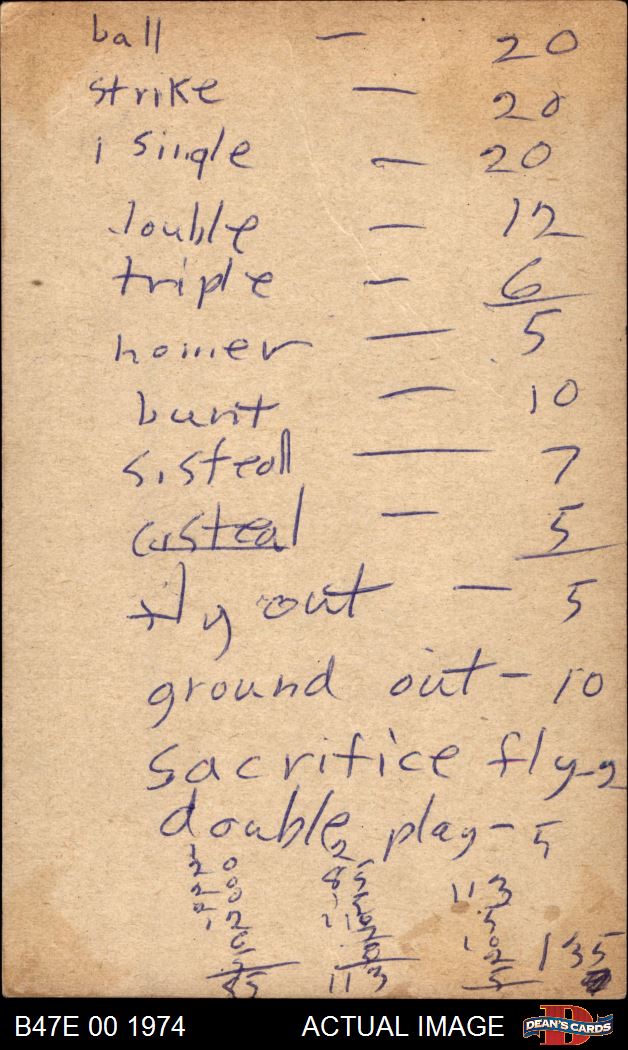 ball — 20
strike — 20
1 single — 20
double — 12
triple — 6
homer — 5
bunt — 10
s.steal — 7
c.steal — 5
fly out — 5
ground out - 10
sacrifice fly - 2
double play - 5
113
135
B47E 00 1974 ACTUAL IMAGE DEAN'S CARDS